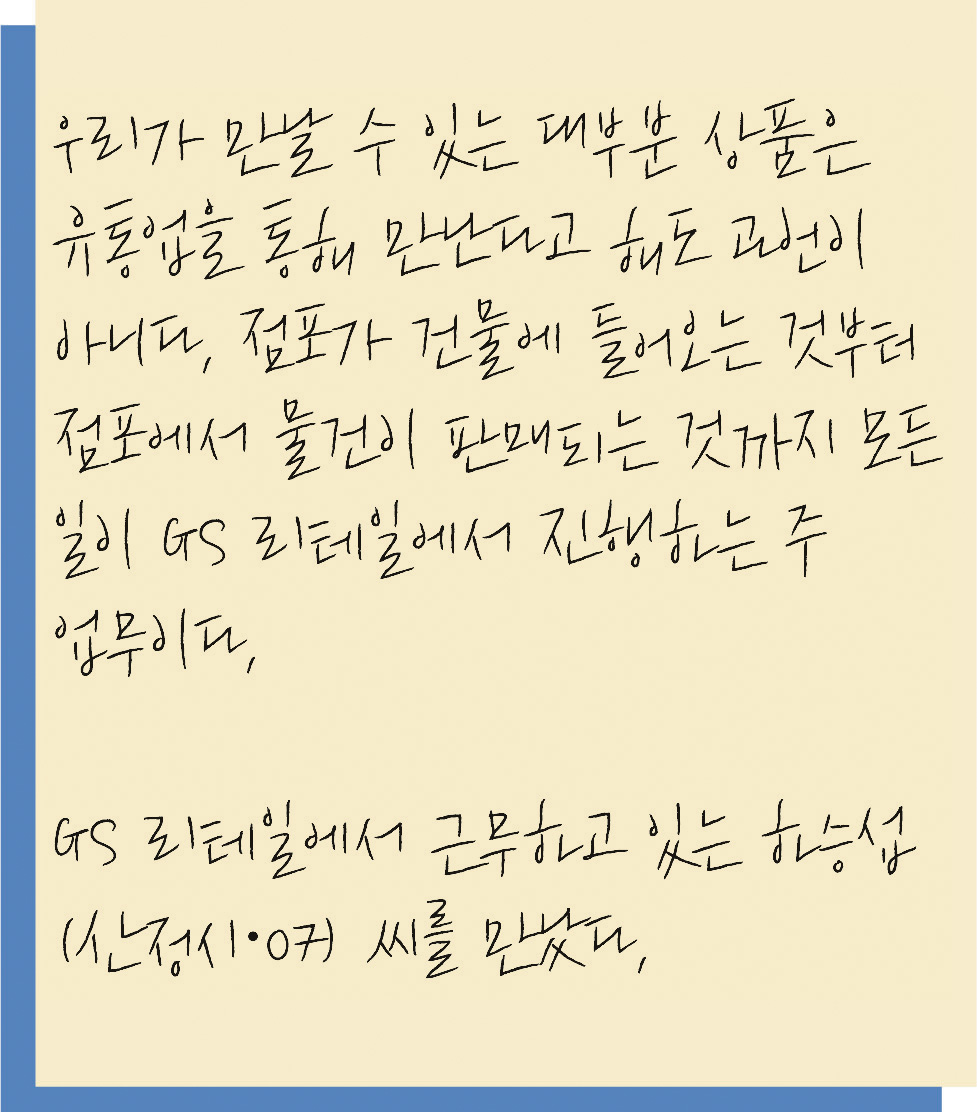 우리가 만날 수 있는 대부분 상품은
유통업을 통해 만난다고 해도 과언이
아니다. 점포가 건물에 들어오는 것부터
점포에서 물건이 판매되는 것까지 모든
일이 GS 리테일에서 진행하는 주
업무이다.
GS 리테일에서 근무하고 있는 한승섭
(산정시•07) 씨를 만났다.